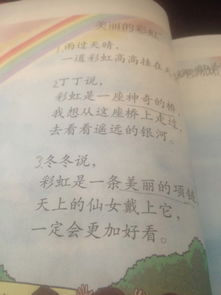 美丽的彩虹
1.雨过天晴，
一道彩虹高高挂在天
2.丁丁说，
彩虹是一座神奇的桥，
我想从这座桥上走过，
去看看遥远的银河。
3.冬冬说，
彩虹是一条美丽的项链，
天上的仙女戴上它，
一定会更加好看。